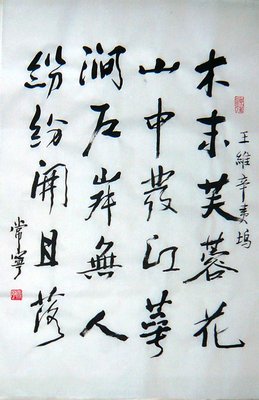 王維辛夷塢
木末芙蓉花
山中發紅萼
澗石岸無人
紛紛開且落
常寧